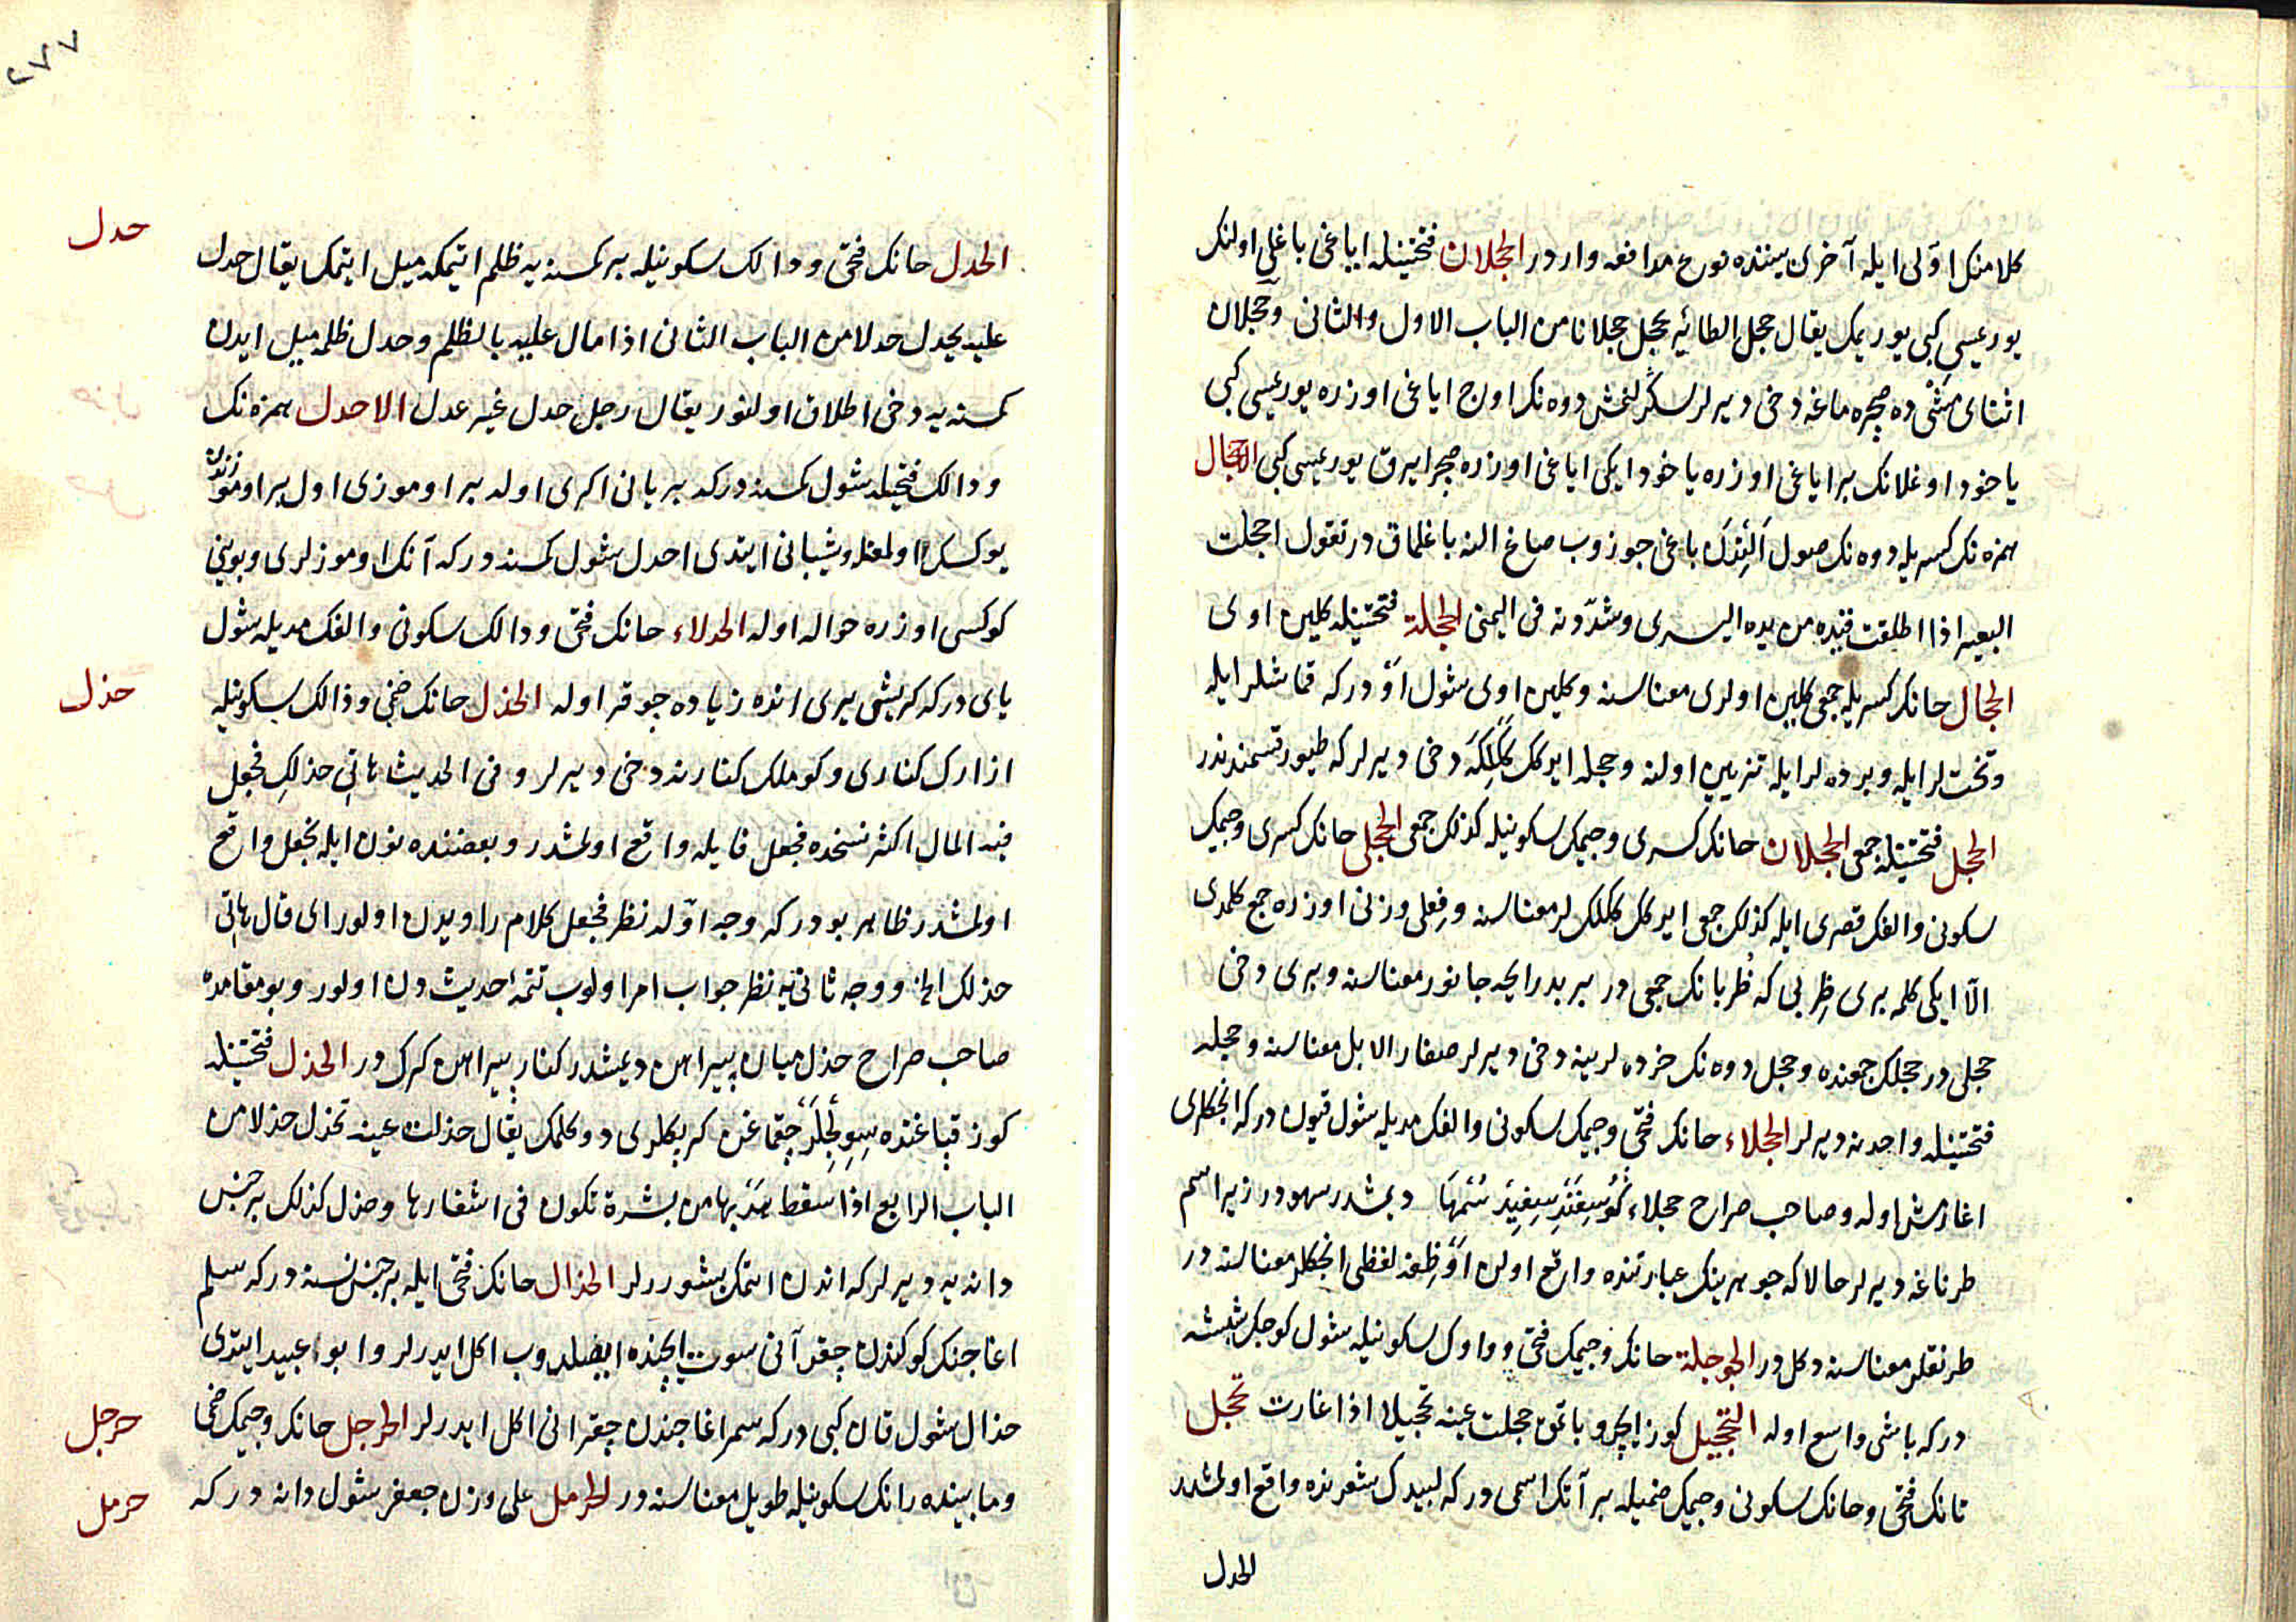 كلامنك اوّلى ايله آخرى بيننده نوع مدافعه واردر الحجلان فتحتينله اياغى باغلى اولنك
يوريسى كبى يوريمك يقال حجل الطائر يحجل حجلانا من الباب الاول والثانى وحجلان
اثناى مشْى ده صچره ماغه دخى ديرلر سكرلنمش دوه نك اوج اياغى اوزره يوريسى كبى
ياخود اوغلانك بر اياغى اوزره ياخود ايكى اياغى اوزره صچرايرق يوريسى كبى الاحجال
همزه نك كسريله دوه نك صول الندن باغى چوزوب صاغ النه باغلمق در تقول احجلت
البعير اذا اطلقت قيده من يده اليسرى وشدّدته فى اليمنى الحجلة فتحتينله كلين اوى
الحجال حانك كسريله جمعى كلين اولرى معناسنه وكلين اوى شول اَوْدركه قماشلر ايله
وتختلر ايله وپرده لر ايله تزيين اولنه وحجله ايركك ككلكه دخى ديرلر كه طيور قسمندندر
الحجل فتحتينله جمعى الحجلان حانك كسرى وجيمك سكونيله كذلك جمعى الحجلى حانك كسرى وجيمك
سكونى والفك قصرى ايله كذلك جمعى ايركك ككلكلر معناسنه وفِعلى وزنى اوزره جمع كلمدى
الّا ايكى كلمه برى ظِربى كه ظربانك جمعى در بر بدرايحه جانور معناسنه وبرى دخى
حجلى در حجلك جمعنده وحجل دوه نك خرده لرينه دخى ديرلر صغار الابل معناسنه وحجله
فتحتينله واحدنه ديرلر الحجلاء حانك فتحى وجيمك سكونى والفك مديله شول قيون دركه انجكلرى
اغارمش اوله وصاحب صراح حجلاء گوسفند سفيد سُمها ديمشدر سهودر زيرا سم
طرناغه ديرلر حالا كه جوهرينك عبارتنده واقع اولن اوْظِفه لفظى انجكلر معناسنه در
طرنقلر معناسنه دكل در الحوجلة حانك وجيمك فتحى وواوك سكونيله شول كوچك شيشه
دركه باشى واسع اوله التحجيل كوز ايچرو باتمق حجلت عينه تحجيلا اذا غارت تحجل
تانك فتحى وحانك سكونى وجيمك ضميله بر آتك اسمى دركه لبيدك شعرنده واقع اولمشدر
الحدل
٢٧٧
حدل
الحدل حانك فتحى ودالك سكونيله بر كمسنه يه ظلم ايتمكه ميل ايتمك يقال حدل
عليه يحدل حدلا من الباب الثانى اذا مال عليه بالظلم وحدل ظلمه ميل ايدن
كمسنه يه دخى اطلاق اولنور يقال رجل حدل غير عدل الاحدل همزه نك
ودالك فتحيله شول كمسنه دركه بر يانى اكرى اوله بر اوموزى اول بر اوموزندن
يوكسك اولمغله وشيبانى ايتدى احدل شول كمسنه دركه آنك اوموزلرى وبوينى
كوكسى اوزره حواله اوله الحدلاء حانك فتحى ودالك سكونى والفك مديله شول
ياى دركه كريشى يرى انده زياده چوقر اوله الحذل حانك ضمى وذالك سكونيله
حذل
ازارك كنارى وكوملك كنارنه دخى ديرلر وفى الحديث هاتى حذلكِ فجعل
فيه المال اكثر نسخده فجعل فايله واقع اولمشدر وبعضنده نون ايله نجعل واقع
اولمشدر ظاهر بودركه وجه اوّله نظر فجعل كلام راويدن اولور اى قال هاتى
حذلك الخ ووجه ثانى يه نظر جواب امر اولوب تتمۀ حديث دن اولور وبو مقامده
صاحب صراح حذل ميان پيراهن ديمشدر كنار پيراهن كرك در الحذل فتحتينله
كوز قپاغنده سِوِلْجِلَر چقمغن كربكلرى دوكلمك يقال حذلت عينه تحذل حذلا من
الباب الرابع اذا سقط هدبها من بشرة تكون فى اشفارها وحذل كذلك بر جنس
دانه يه ديرلر كه اندن اتمك پيشوررلر الحذال حانك فتحى ايله بر جنس نسنه دركه سلم
اغاجنك كوكندن چقر آنى سوت ايچنده ايصلدوب اكل ايدرلر وابو عبيد ايتدى
حذال شول قان كبى دركه سمر اغاجندن چقر انى اكل ايدرلر الحرجل حانك وجيمك ضمى
حرجل
ومابينده رانك سكونيله طويل معناسنه در الحرمل على وزن جعفر شول دانه دركه
حرمل